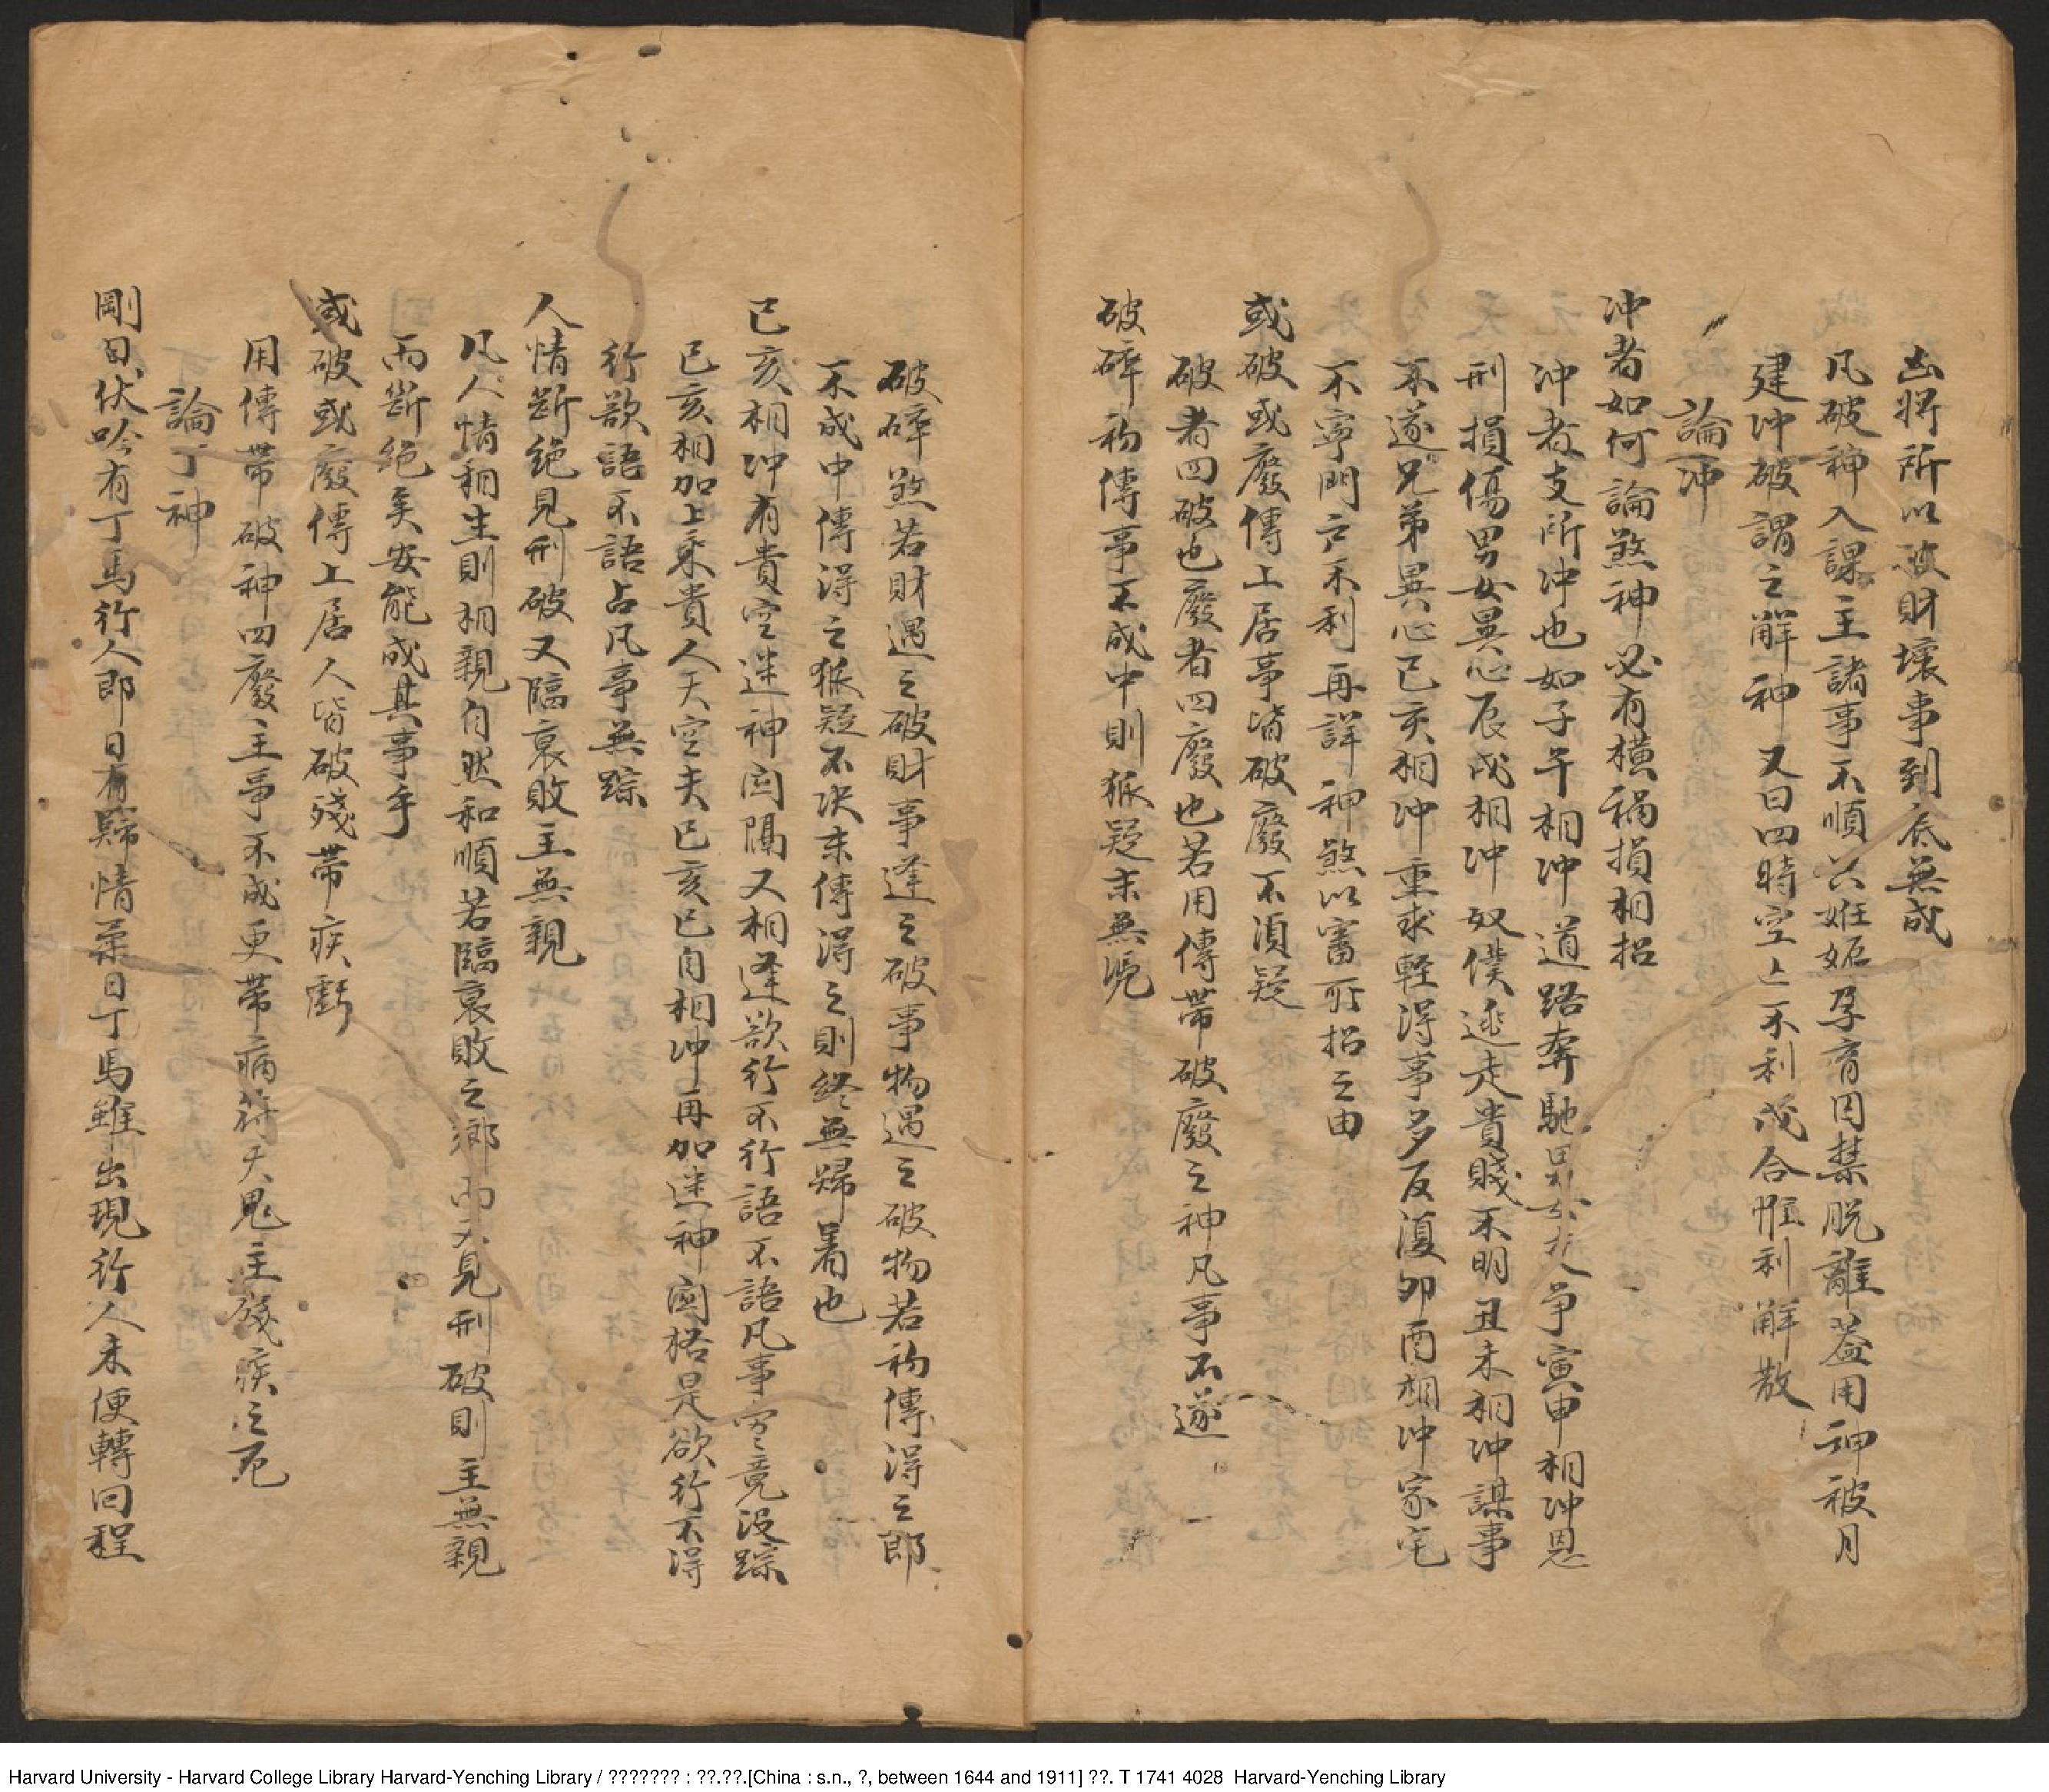 凶將所以破財壞事到底無成
凡破神入課主諸事不順只姙娠孕育囚禁脫離蓋用神被月
建冲破謂之解神又曰四時空亡不利成合惟利解散
論冲
冲者如何論煞神必有橫禍損相招
冲者支所冲也如子午相冲道路奔馳男女争寅申相冲恩
刑損傷男女異心辰戌相冲奴僕逃走貴賤不明丑未相冲謀事
不遂兄弟異心巳亥相冲重求輕得事多反復卯酉相冲家宅
不寧門户不利再詳神煞以審所招之由
或破或廢傳上居事皆破廢不須疑
破者四破也廢者四廢也若用傳帶破廢之神凡事不遂
破碎初傳事不成中則狐疑末無
破碎煞若財遇之破財事逢之破事物遇之破物若初傳得之郎
不成中傳得之狐疑不决末傳得之則終無歸着也
巳亥相冲有貴空迷神関隔又相逢欲行不行語不語凡事竟没踪
巳亥相加上乘貴人天空夫巳亥巳自相冲再加迷神関格是欲行不得
行欲語不語占凡事無踪
人情斷絶見刑破又臨衰敗主無親
凡人情相生則相親自然和順若臨衰敗之鄉而又見刑破則主無親
而斷絶矣安能成其事乎
或破或廢傳上居人皆破殘帶疾虧
用傳帶破神四廢主事不成更帶病符天鬼主殘疾之厄
論丁神
剛日伏吟有丁馬行人即日有歸情柔日丁馬雖出現行人未便轉回程
Harvard University - Harvard College Library Harvard-Yenching Library / ??????? : ??.??.[China : s.n., ?, between 1644 and 1911] ??. T 1741 4028 Harvard-Yenching Library